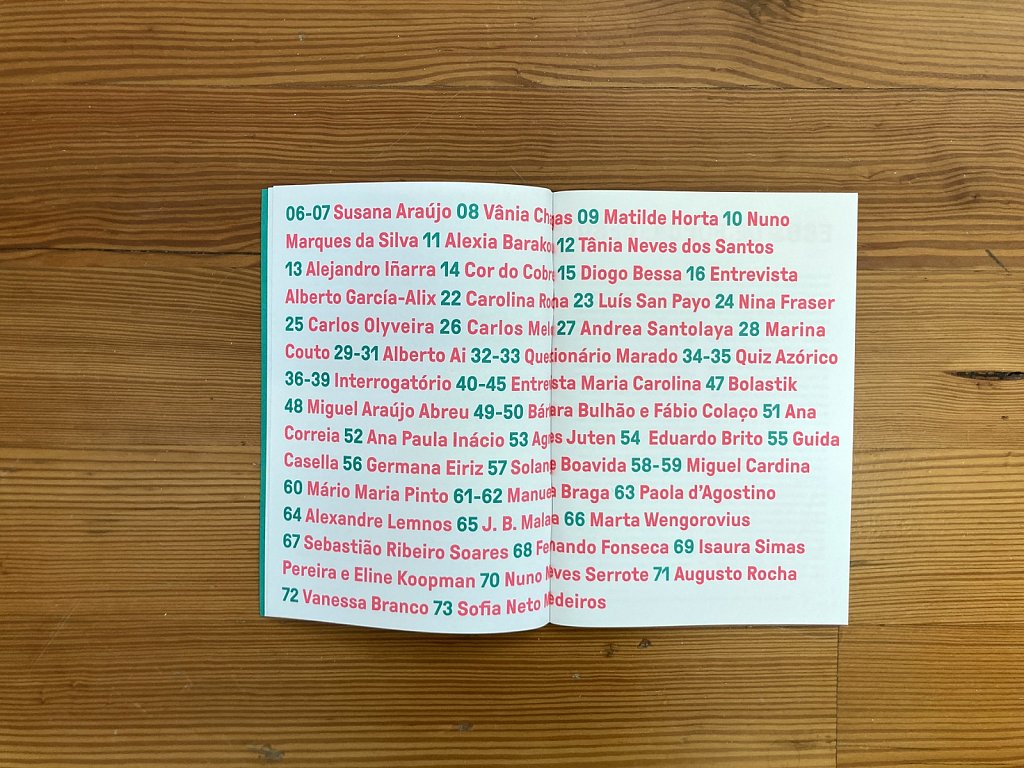 06-07 Susana Araújo 08 Vânia Chagas 09 Matilde Horta 10 Nuno
Marques da Silva 11 Alexia 12 Tânia Neves dos Santos
13 Alejandro Iñarra 14 Cor do 15 Diogo Bessa 16 Entrevista
Alberto García-Alix 22 Carolina 23 Luís San Payo 24 Nina Fraser
25 Carlos Olyveira 26 Carlos 27 Andrea Santolaya 28 Marina
Couto 29-31 Alberto Ai 32-33 Questionário Marado 34-35 Quiz Azórico
36-39 Interrogatório 40-45 Entrevista Maria Carolina 47 Bolastik
48 Miguel Araújo Abreu 49-50 Bárbara Bulhão e Fábio Colaço 51 Ana
Correia 52 Ana Paula Inácio 53 Agnes Juten 54 Eduardo Brito 55 Guida
Casella 56 Germana Eiriz 57 Solange Boavida 58-59 Miguel Cardina
60 Mário Maria Pinto 61-62 Manuela Braga 63 Paola d’Agostino
64 Alexandre Lemnos 65 J. B. 66 Marta Wengorovius
67 Sebastião Ribeiro Soares 68 Fernando Fonseca 69 Isaura Simas
Pereira e Eline Koopman 70 Nuno Neves Serrote 71 Augusto Rocha
72 Vanessa Branco 73 Sofia Neto Medeiros